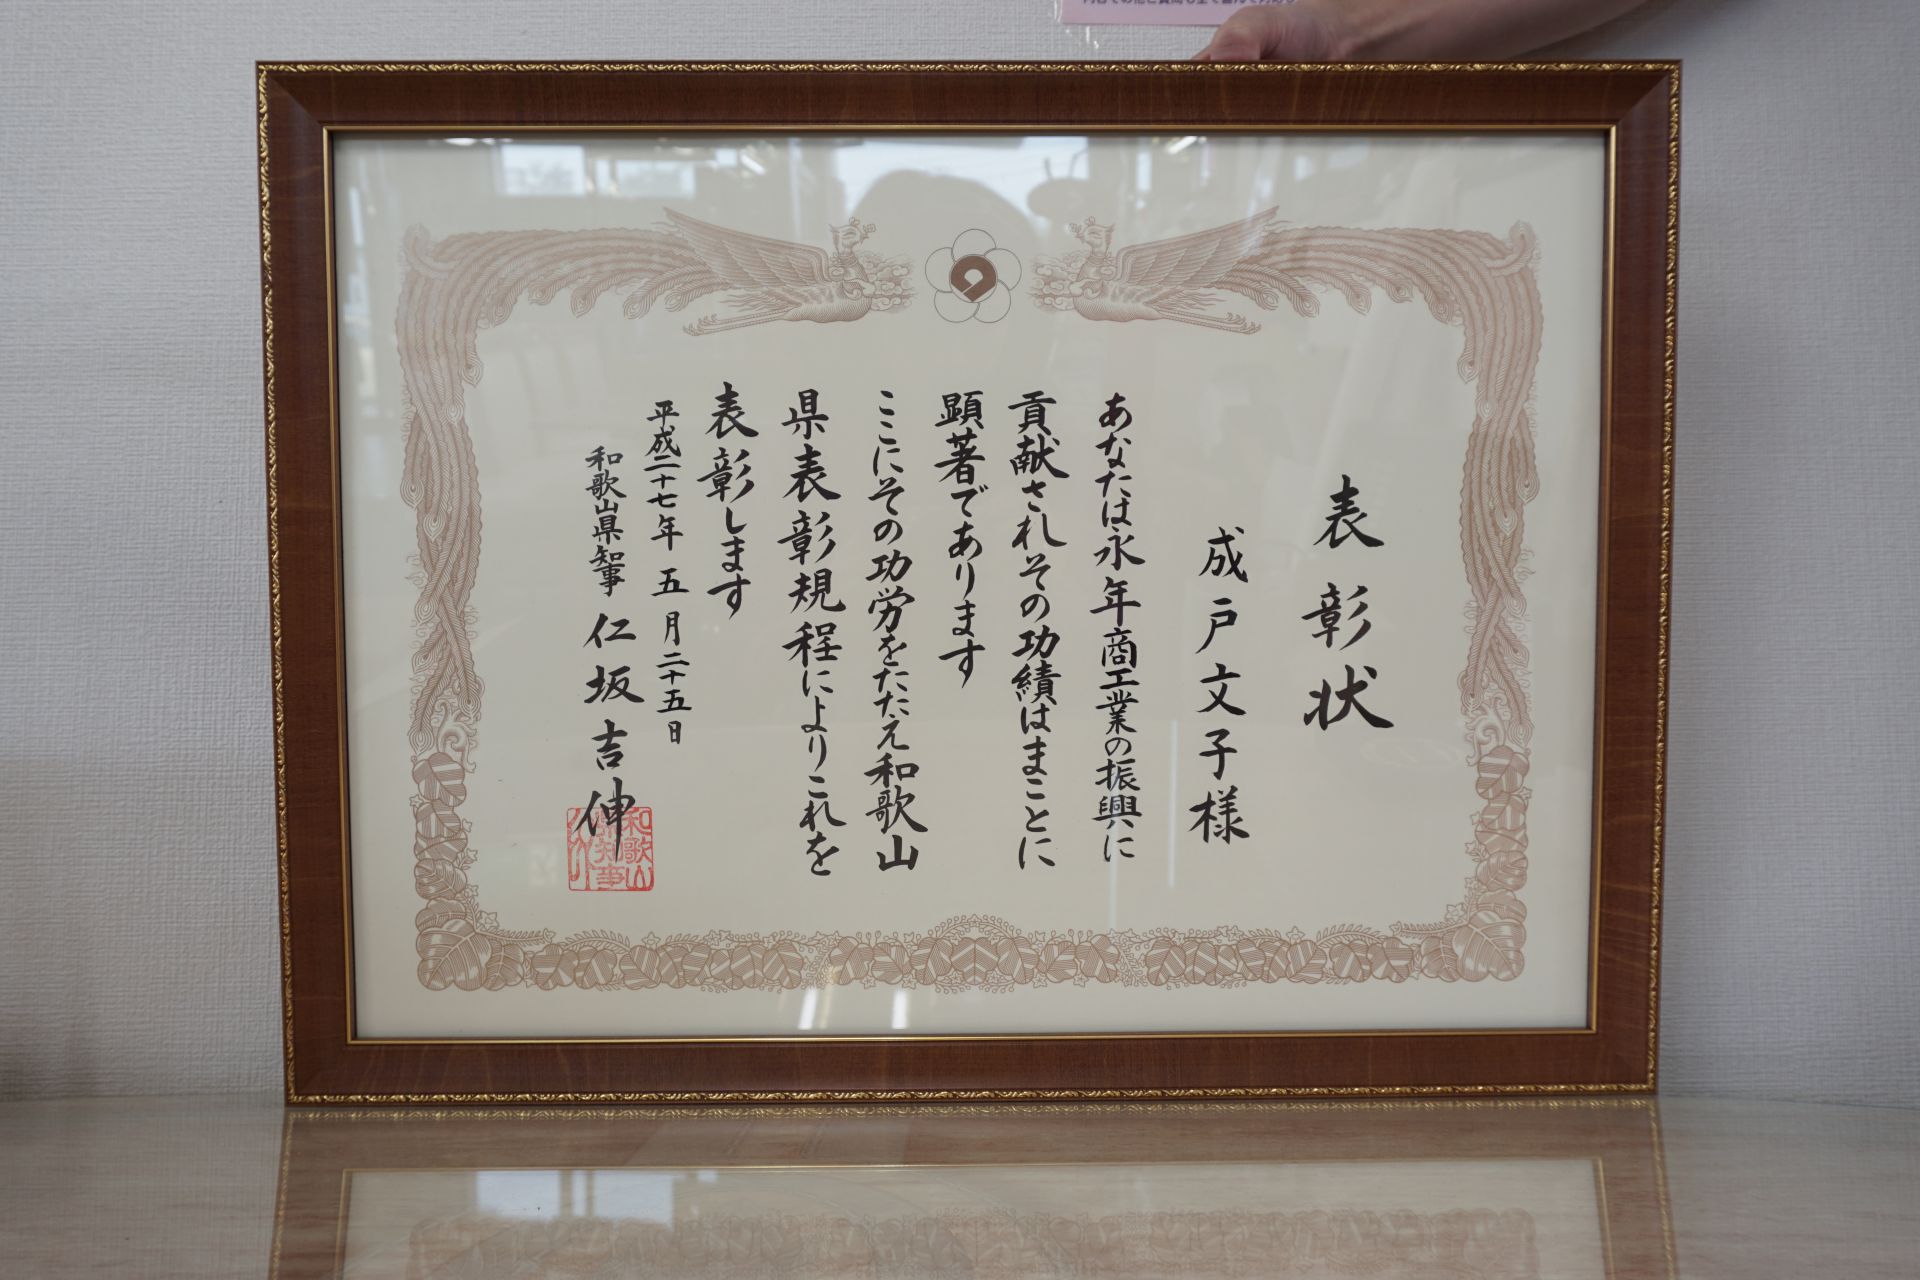 表彰状
成戸文子様
あなたは永年商工業の振興に
貢献されその功績はまことに
顕著であります
ここにその功労をたたえ和歌山
県表彰規程によりこれを
表彰します
平成二十七年五月二十五日
和歌山県知事 仁坂吉伸